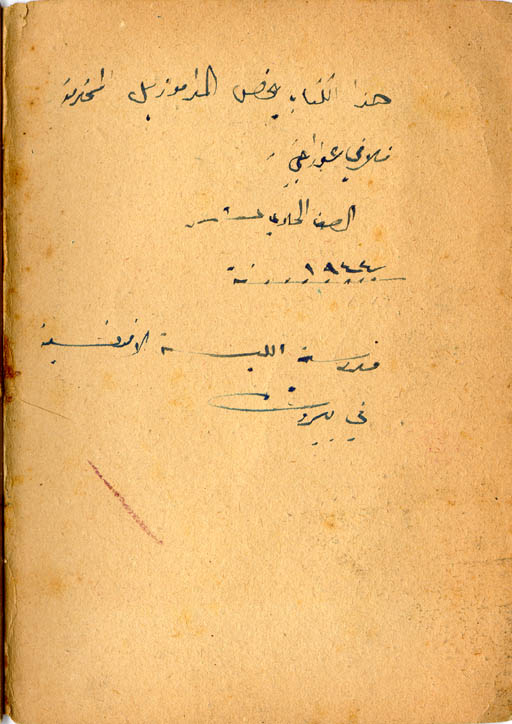 هذا الكتاب يخص المدموزيل المحترمة
الصف الحادي عشر
سنة ١٩٤٤
مدرسة الليسة الافرنسية
في بيروت